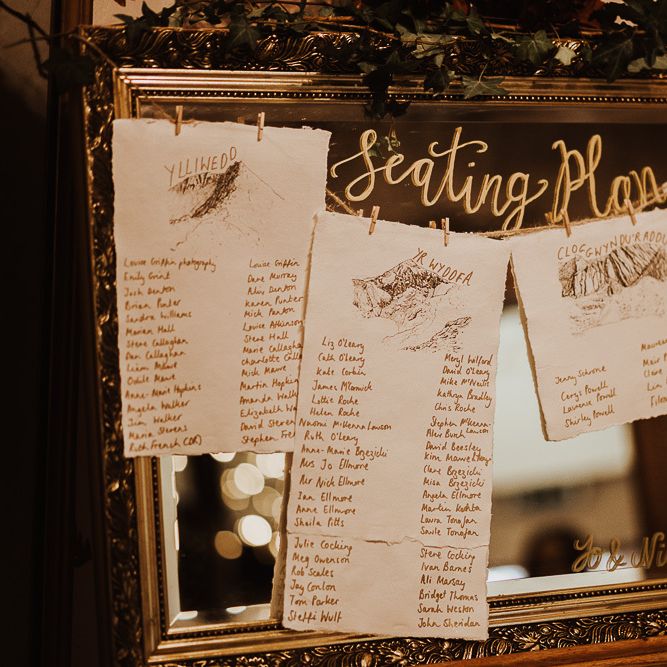 Seating Plan
YLLIWEDD
Louise Griffin photography
Emily Grint
Josh Denton
Brian Punter
Sandra Williams
Marian Hall
Steve Callaghan
Dan Callaghan
Liam Mawe
Odile Mawe
Anne-Marie Hopkins
Angela Walker
Jim Walker
Maria Stevens
Ruth French (CDR)
Louise Griffin
Dave Murray
Alis Denton
Karen Punter
Mick Panton
Louise Atkinson
Steve Hall
Marie Callagha
Charlotte Calla
Nick Mawe
Martin Hopki
Amanda Walk
Elizabeth Wa
David Stevens
Stephen F
YR WYDDFA
Liz O'Leary
Cath O'Leary
Kate Corbin
James M
Lottie Roche
Helen Roche
Naomi McKenna Lawson
Ruth O'Leary
Anne-Marie Brzezicki
Mrs Jo Ellmore
Mr Nick Ellmore
Ian Ellmore
Anne Ellmore
Sheila Pitts
Julie Cocking
Meg Owenson
Rob Scales
Jay Conlon
Tom Parker
Steffi Wulf
Meryl Walford
David O'Leary
Mike McNeill
Kathryn Bradley
Chris Roche
Stephen McKenna-Lawson
Alex Burch
David Beesley
Kim Mawe
Clare Brzezicki
Misa Brzezicki
Angela Ellmore
Martin
Laura Tonajan
Saule Tonajan
Steve Cocking
Ivan Barnes
Ali Marsay
Bridget Thomas
Sarah Weston
John Sheridan
CLOGGWYN DU'R ARDDU
Jenny Schrone
Cerys Powell
Laurence Powell
Shirley Powell
Jo & Ni